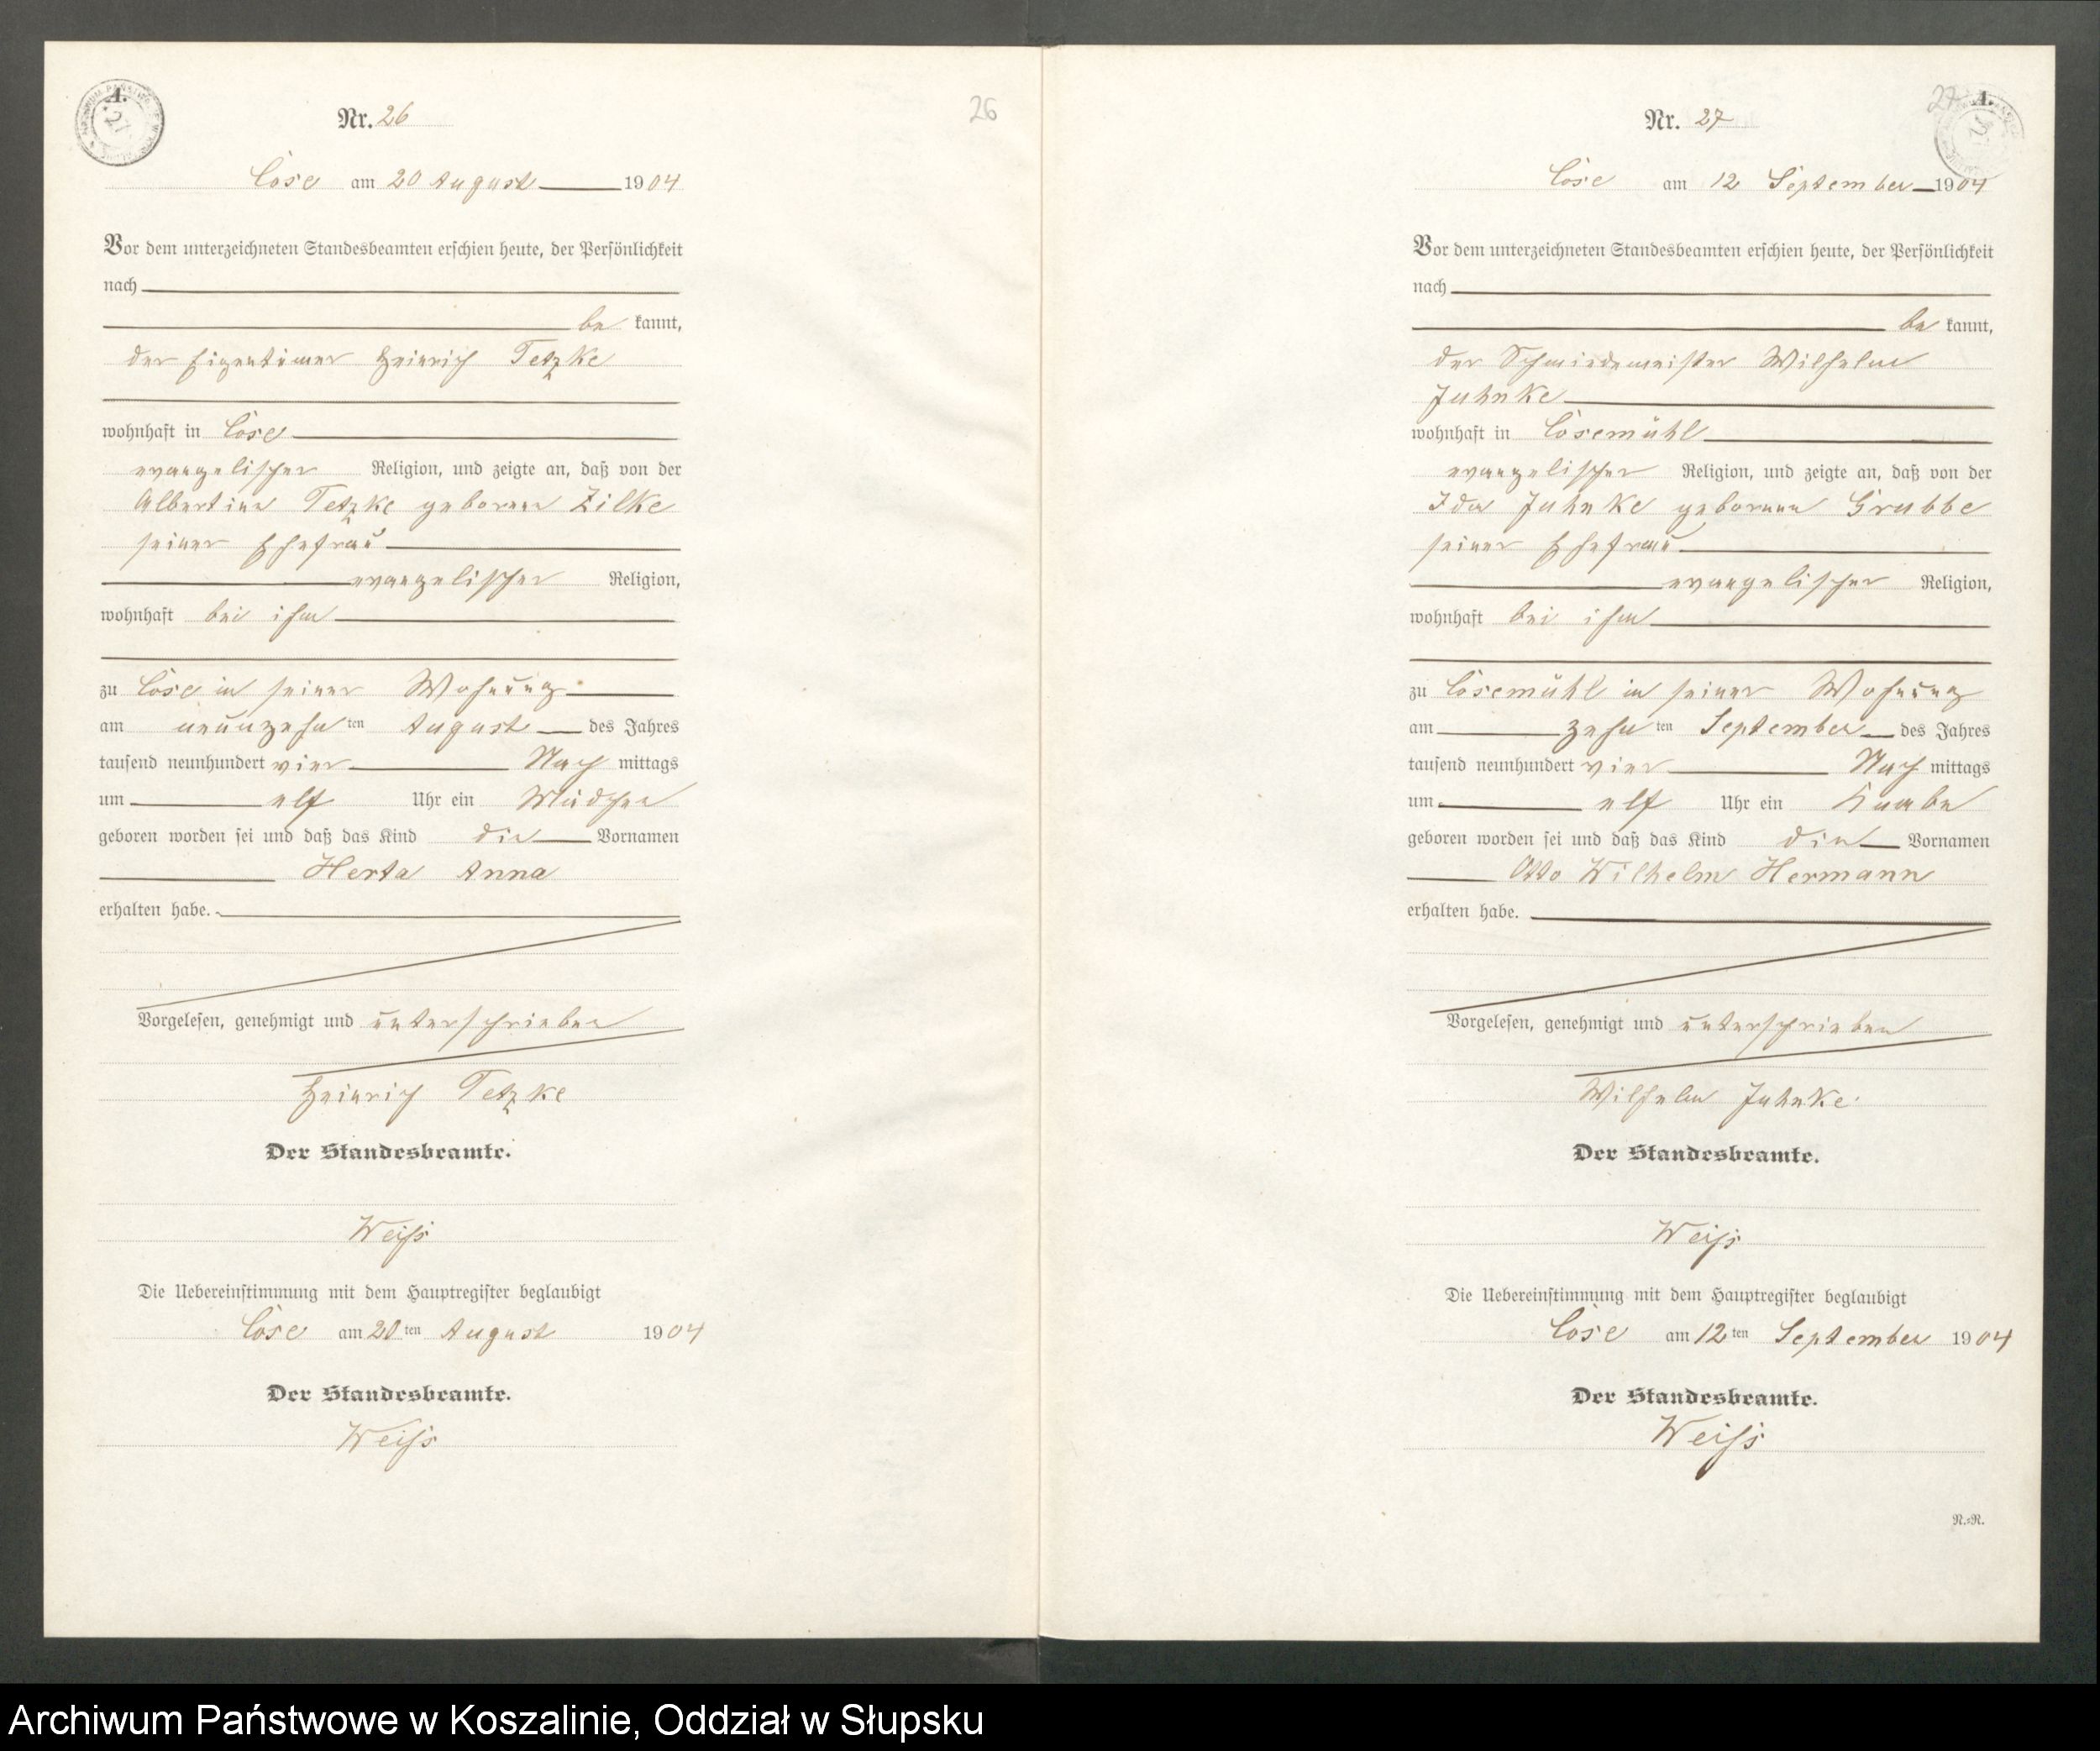 A.
Nr. 26
26
Löse am 20 August 1904
Vor dem unterzeichneten Standesbeamten erschien heute, der Persönlichkeit
nach
be kannt,
der Eigentümer Heinrich Tetzke
wohnhaft in Löse
evangelischer Religion, und zeigte an, daß von der
Albertine Tetzke geborene Zilke
seiner Ehefrau
evangelischer Religion,
wohnhaft bei ihm
zu Löse in seiner Wohnung
am neunzehnten August des Jahres
tausend neunhundert vier Nach mittags
um elf Uhr ein Mädchen
geboren worden sei und daß das Kind die Vornamen
Herta Anna
erhalten habe.
Vorgelesen, genehmigt und unterschrieben
Heinrich Tetzke
Der Standesbeamte.
Weiß
Die Uebereinstimmung mit dem Hauptregister beglaubigt
Löse am 20ten August 1904
Der Standesbeamte.
Weiß
27
A.
Nr. 27
Löse am 12 September 1904
Vor dem unterzeichneten Standesbeamten erschien heute, der Persönlichkeit
nach
be kannt,
der Schmiedemeister Wilhelm
Juhnke
wohnhaft in Lösemühl
evangelischer Religion, und zeigte an, daß von der
Ida Juhnke geborene Grubbe
seiner Ehefrau
evangelischer Religion,
wohnhaft bei ihm
zu Lösemühl in seiner Wohnung
am zehnten September des Jahres
tausend neunhundert vier Nach mittags
um elf Uhr ein Knabe
geboren worden sei und daß das Kind die Vornamen
Otto Wilhelm Hermann
erhalten habe.
Vorgelesen, genehmigt und unterschrieben
Wilhelm Juhnke
Der Standesbeamte.
Weiß
Die Uebereinstimmung mit dem Hauptregister beglaubigt
Löse am 12ten September 1904
Der Standesbeamte.
Weiß
N.=N.
Archiwum Państwowe w Koszalinie, Oddział w Słupsku